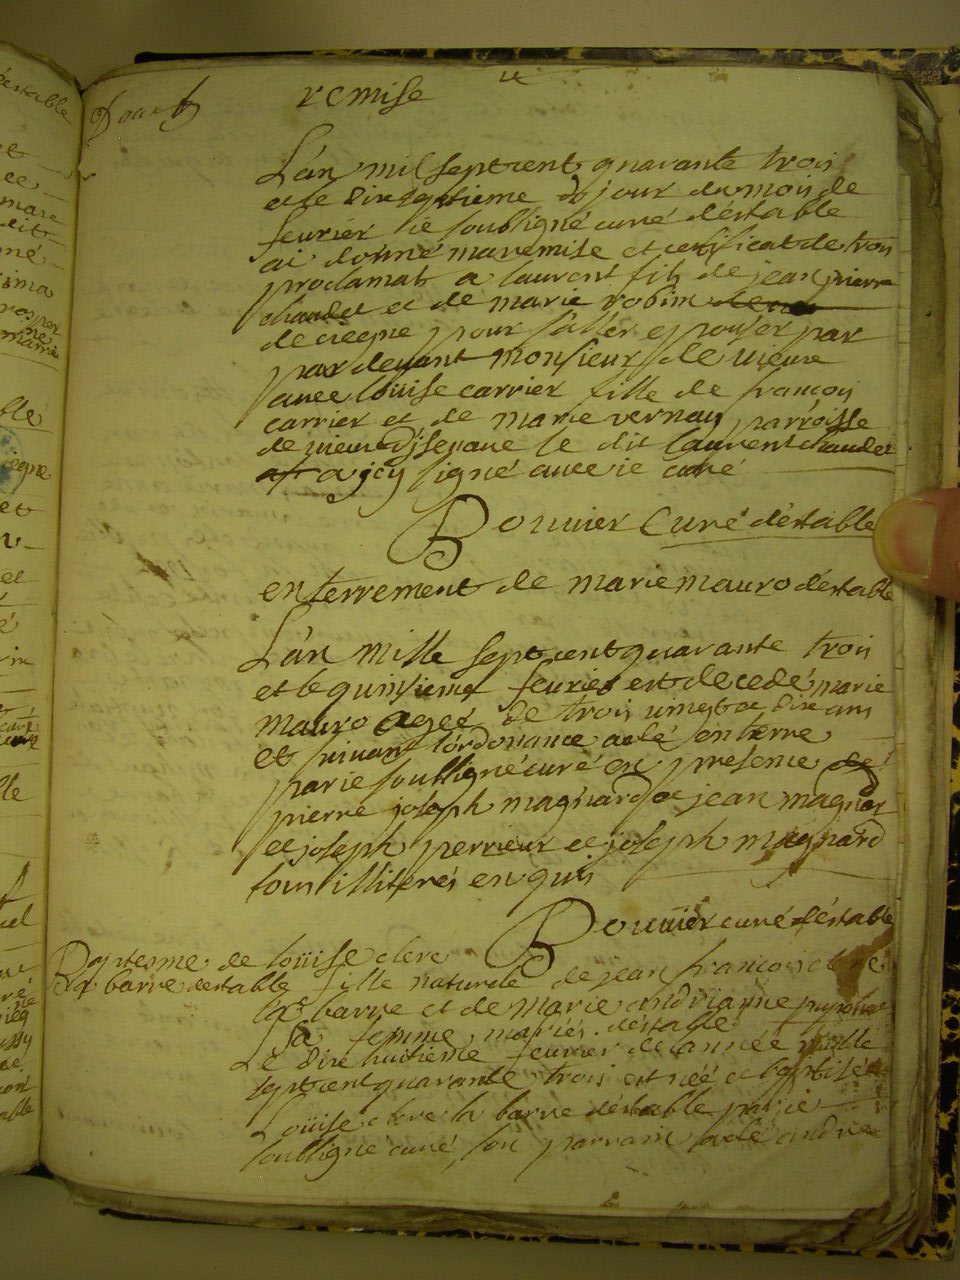 remise
L'an mil sept cent quarante trois
et le dix septieme jour du mois de
fevrier ie soubsigné curé déstable
ai donné ma remise et certificat de trois
proclamats a laurent fils de jean pierre
chaudet et de marie robin
de cregne pour s'aller epouser par
par devant monsieur de vieure
avec loüise carrier fille de francois
carrier et de marie vernay parroisse
de vieure le dit laurent chaudet
a icy signé avec ie curé
Bouvier Curé déstable
enterrement de marie mauro déstable
L'an mille sept cent quarante trois
et le quinsieme fevrier est decedé marie
mauro ageé de trois vingt et dix ans
et suivant l'ordonance a eté enterre
par ie soubsigné curé en presence de
pierre joseph magnard et jean magnar
et joseph perrieur et joseph magnard
tous illiterés enquis
Bouvier curé déstable
Baptesme de loüise clerc
barre destable fille naturele de jean francois clerc
barre et de marie andrianne
sa femme mariés déstable
Le dix huitieme fevrier de l'année mille
sept cent quarante trois est née et baptisée
Loüise clerc la barre déstable par ie
soubsigné curé, son parrain a eté andre